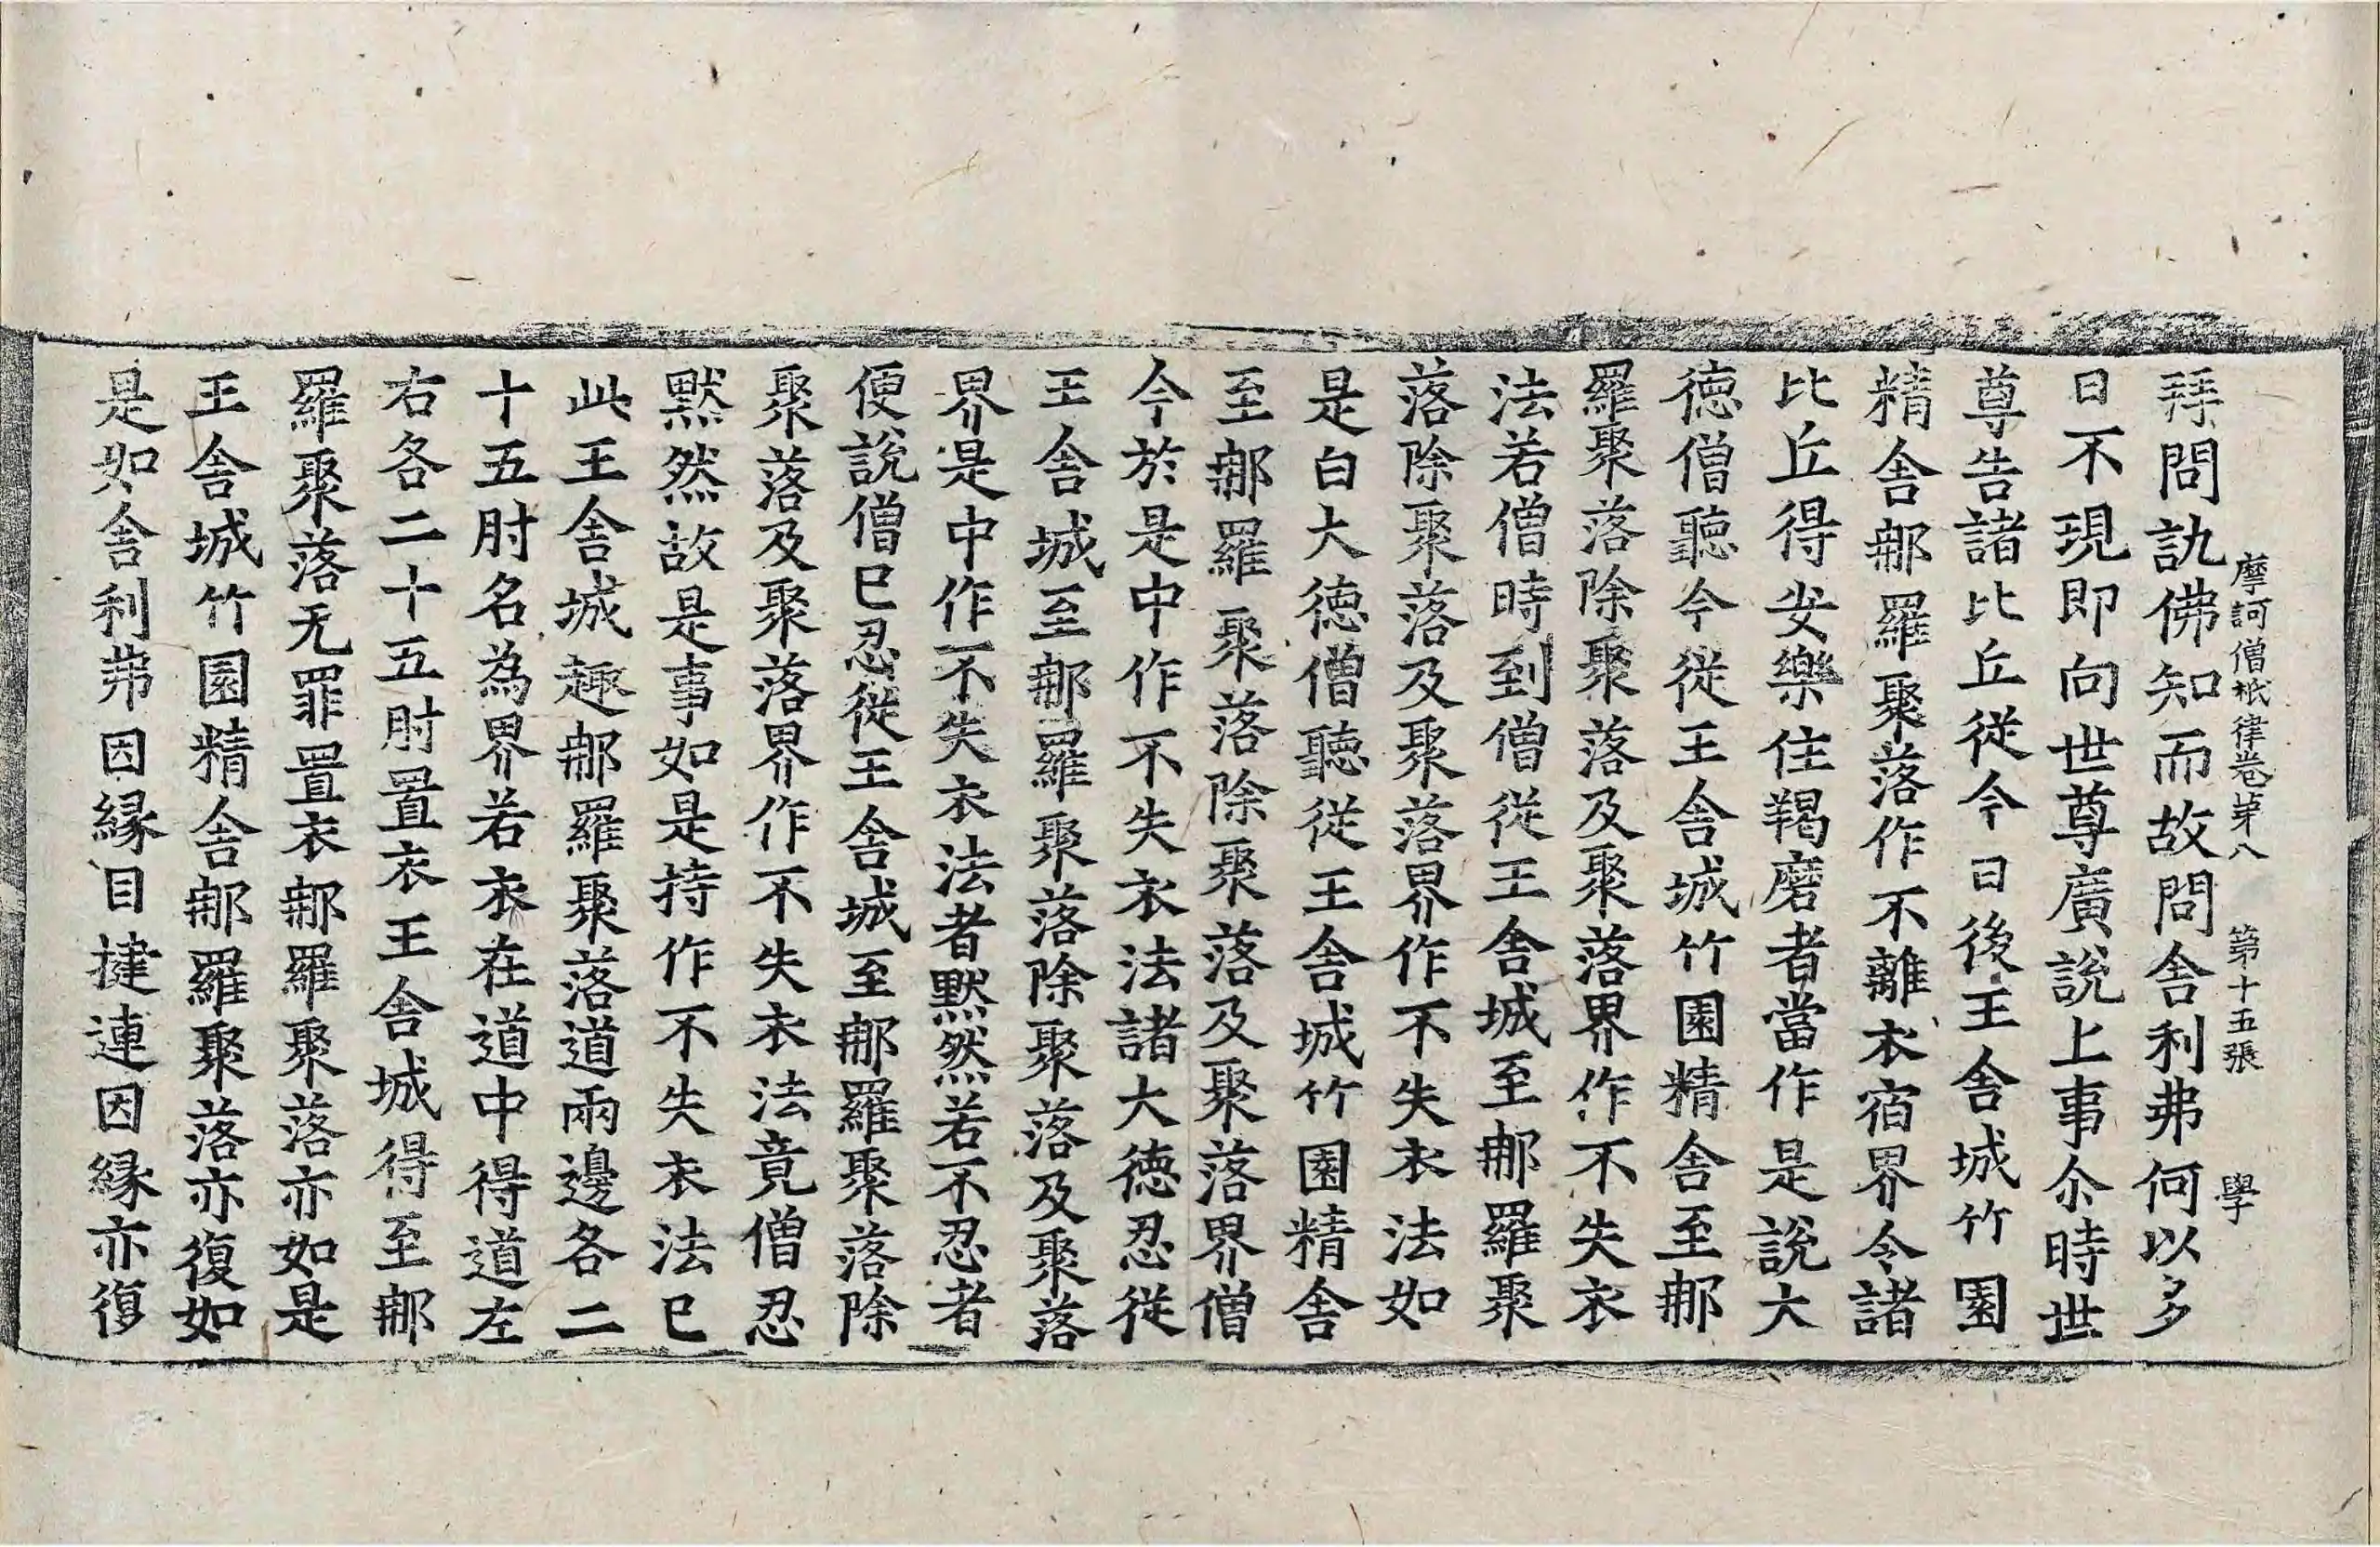 摩訶僧祇律卷苐八　第十五張　學
拜問訊佛知而故問舍利弗何以多
日不現即向世尊廣說上事尒時世
尊告諸比丘從今日後王舍城竹園
精舍郍羅聚落作不離衣宿界令諸
比丘得安樂住羯磨者當作是說大
德僧聽今從王舍城竹園精舍至郍
羅聚落除聚落及聚落界作不失衣
法若僧時到僧從王舍城至郍羅聚
落除聚落及聚落界作不失衣法如
是白大德僧聽從王舍城竹園精舍
至郍羅聚落除聚落及聚落界僧
今於是中作不失衣法諸大德忍從
王舍城至郍羅聚落除聚落及聚落
界是中作不失衣法者默然若不忍者
便說僧已忍從王舍城至郍羅聚落除
聚落及聚落界作不失衣法竟僧忍
默然故是事如是持作不失衣法已
此王舍城趣郍羅聚落道兩邊各二
十五肘名為界若衣在道中得道左
右各二十五肘置衣王舍城得至郍
羅聚落无罪置衣郍羅聚落亦如是
王舍城竹園精舍郍羅聚落亦復如
是如舍利弗因縁目揵連因縁亦復